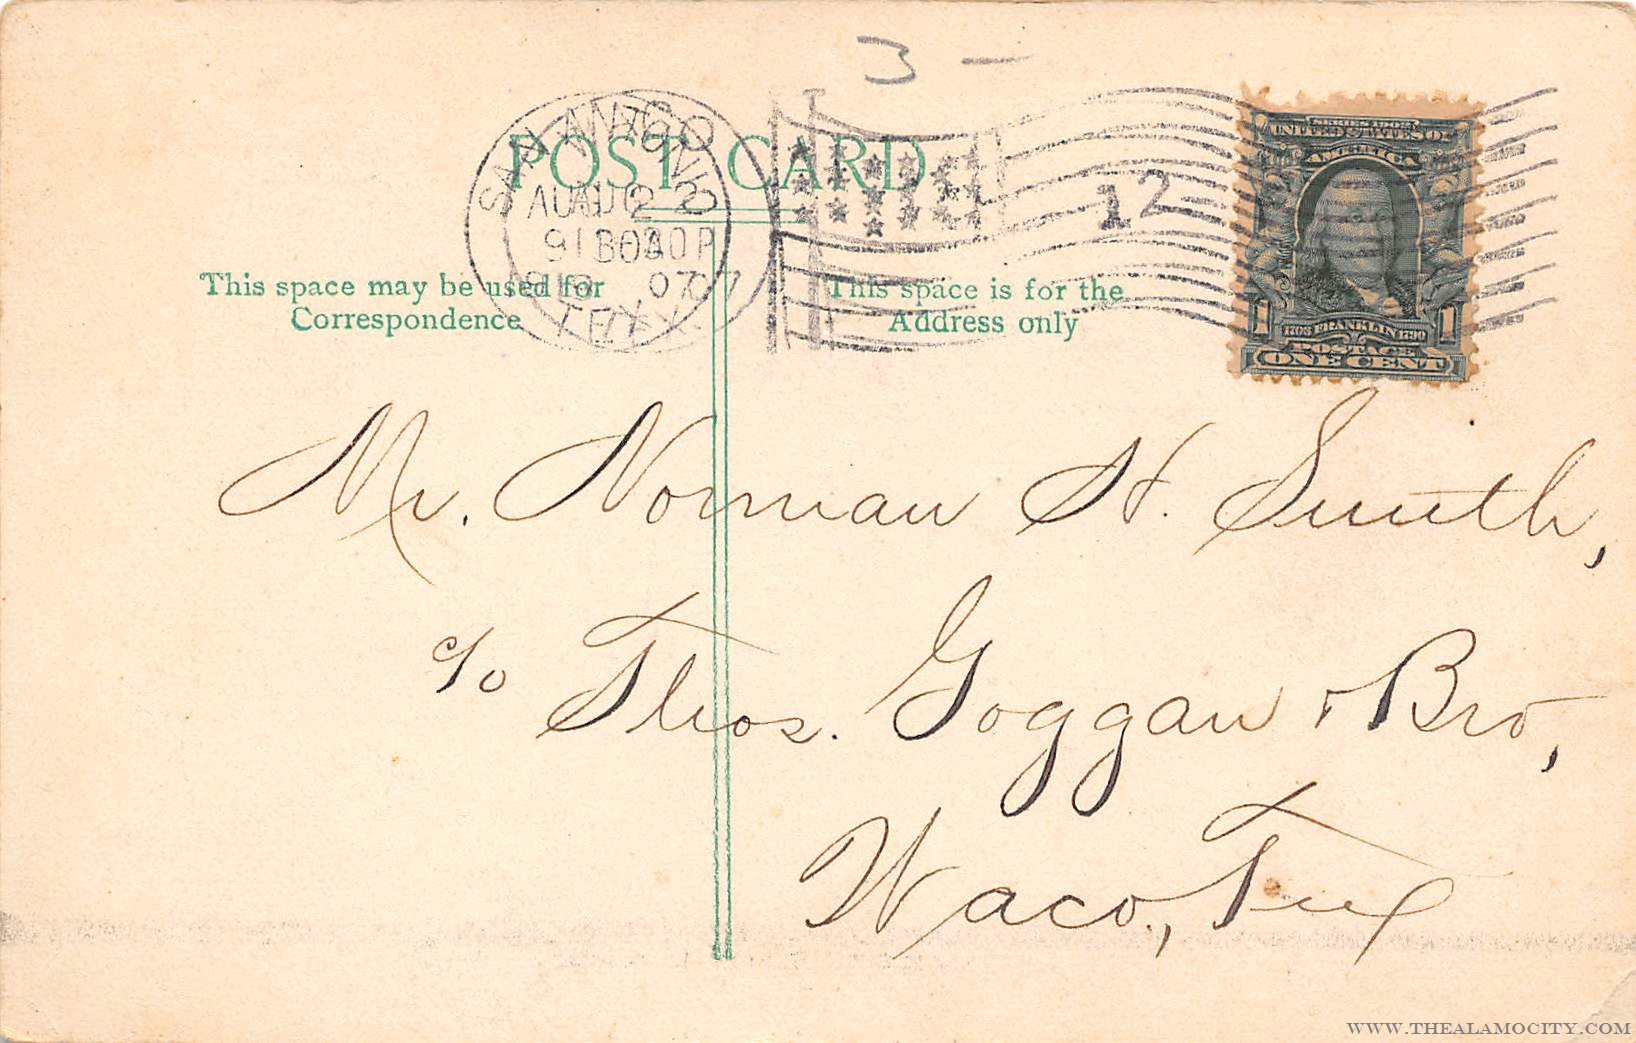 3 -
POST CARD
SAN ANTONIO
AUG 2
1907
TEX.
12
SERIES 1902
UNITED STATES OF
AMERICA
1 1708 FRANKLIN 1790 1
POSTAGE
ONE CENT
This space may be used for
Correspondence
This space is for the
Address only
Mr. Norman H. Smith,
c/o Thos. Goggan & Bro,
Waco, Tex
WWW.THEALAMOCITY.COM